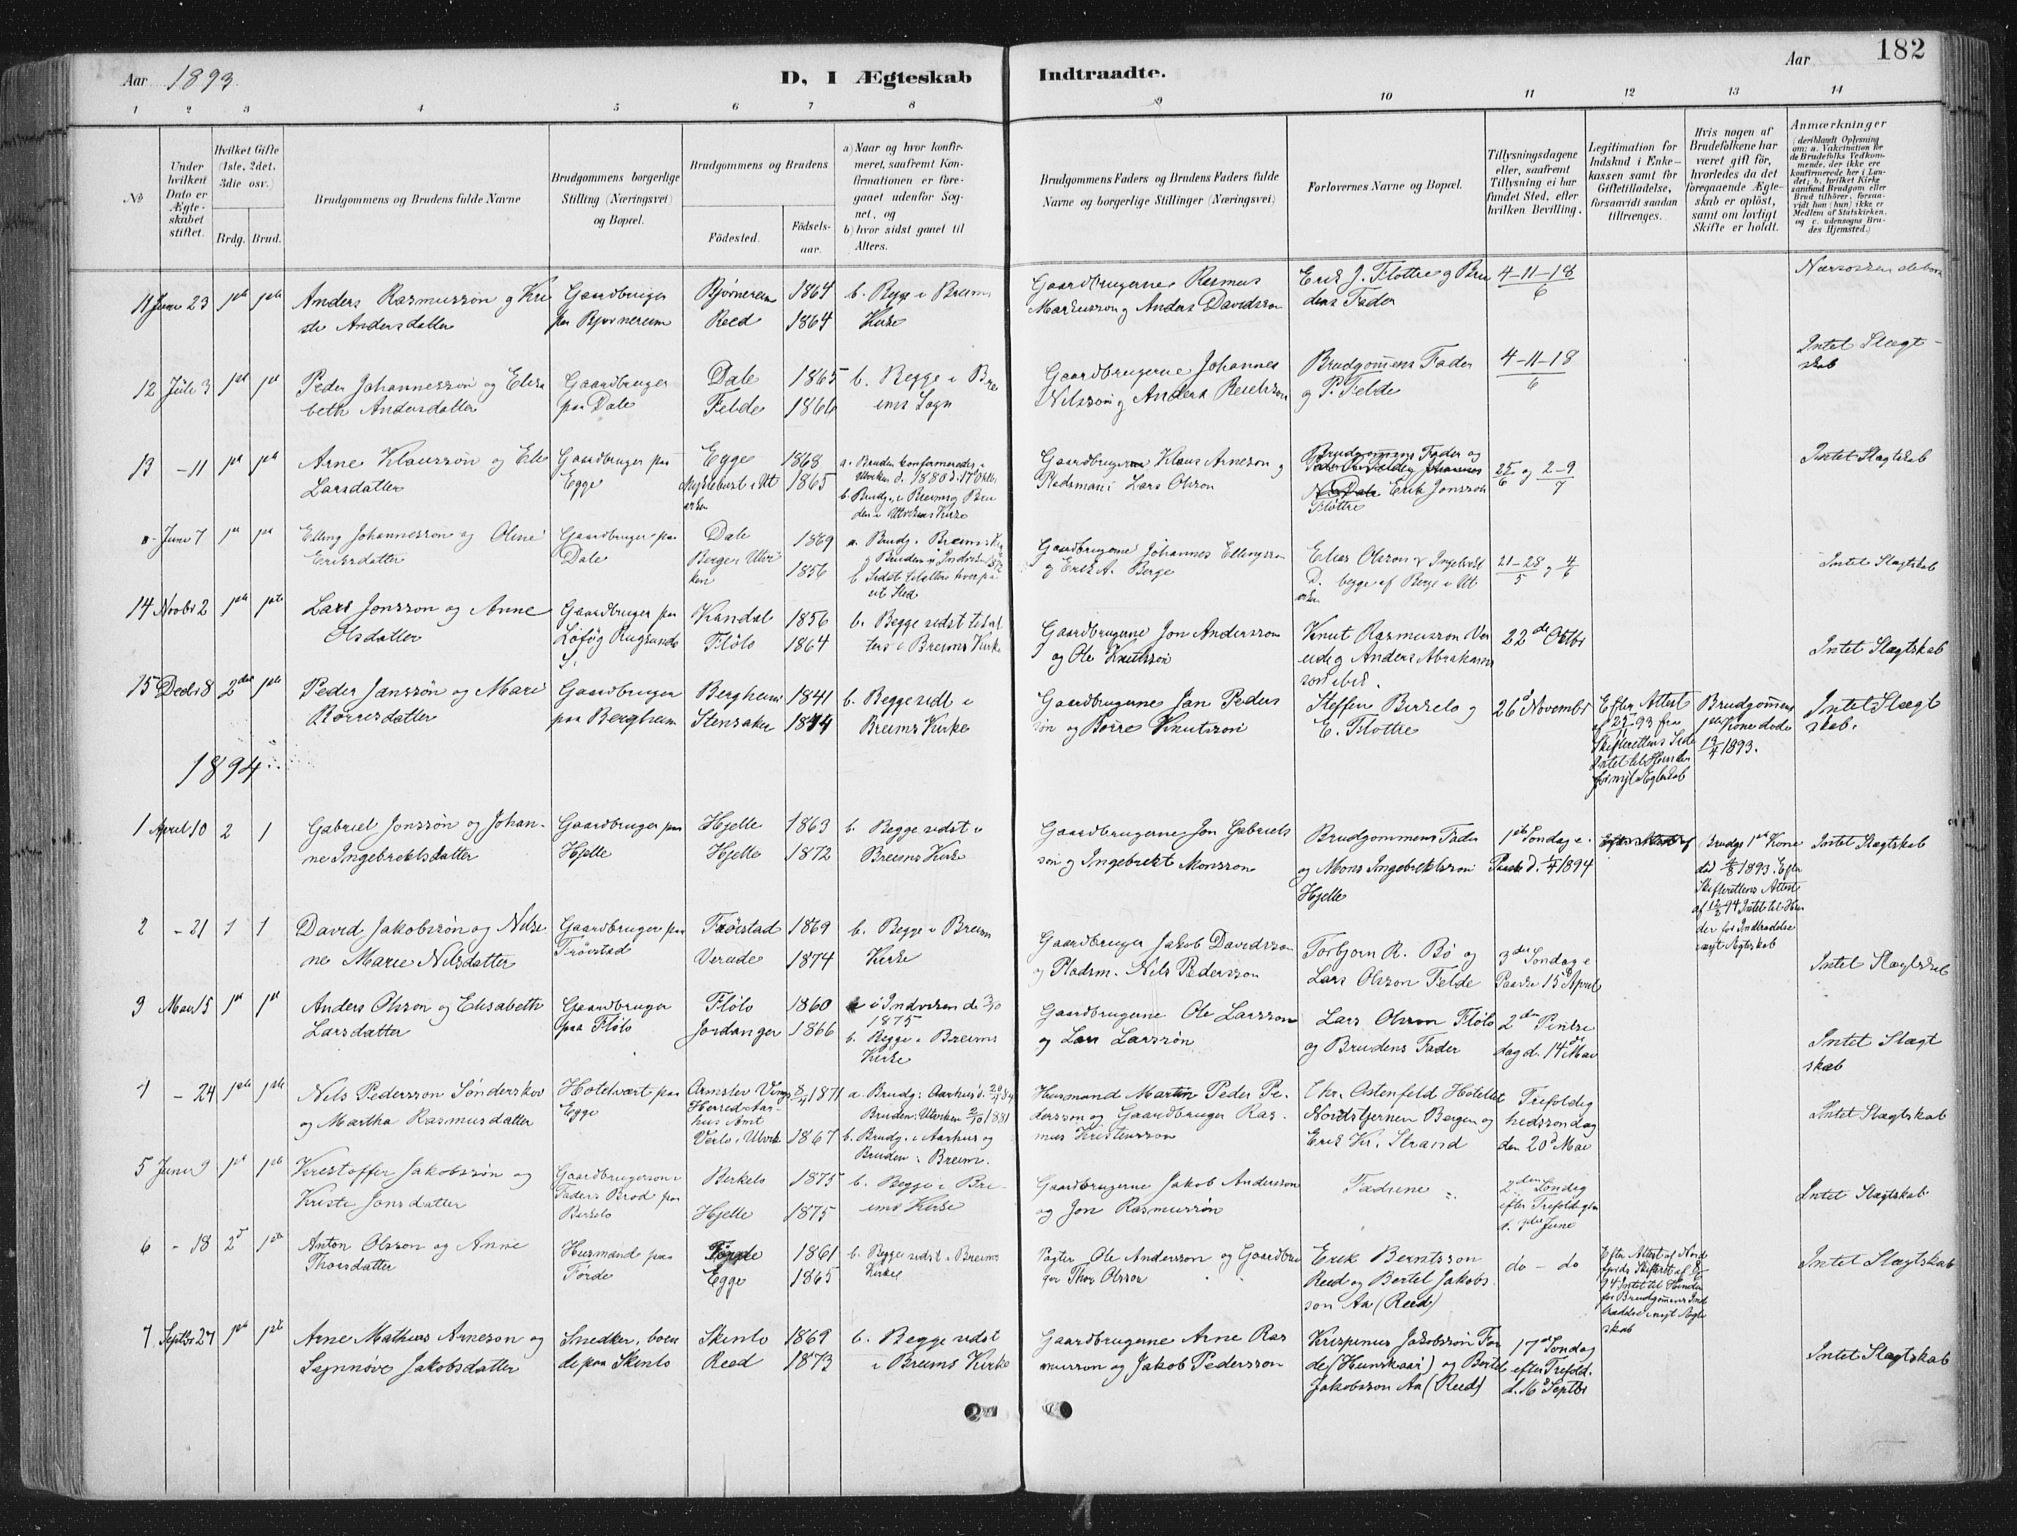 182
Aar 1893.
D, I Ægteskab Indtraadte.
Aar
1 2 3 4 5 6 7 8 9 10 11 12 13 14
№
Under hvilken Dato er Ægteskabet stiftet.
Hvilket Gifte (1ste, 2det, 3die osv.)
Brdg. Brud.
Brudgommens og Brudens fulde Navne
Brudgommens borgerlige Stilling (Næringsvei) og Bopæl.
Brudgommens og Brudens
Fødested.
Fødselsaar.
a) Naar og hvor konfirmeret, saafremt Konfirmationen er foregaaet udenfor Sognet, og
b) hvor sidst gaaet til Alters.
Brudgommens Faders og Brudens Faders fulde Navne og borgerlige Stillinger (Næringsvei)
Forlovernes Navne og Bopæl.
Tillysningsdagene eller, saafremt Tillysning ei har fundet Sted, efter hvilken Bevilling.
Legitimation for Indskud i Enkekassen samt for Giftetilladelse, forsaavidt saadan tiltrænges.
Hvis nogen af Brudefolkene har været gift før, hvorledes da det foregaaende Ægteskab er opløst, samt om lovligt Skifte er holdt.
Anmærkninger
(deriblandt Oplysning om: a. Vakcination for de Brudefolks Vedkommende, der ikke ere konfirmerede her i Landet; b. hvilket Kirkesamfund Brudgom eller Brud tilhører, forsaavidt han (hun) ikke er Medlem af Statskirken, og c. udensogns Brudes Hjemsted.)
11 Juni 23 1ste 1ste Anders Rasmussøn og Kristi Andersdatter Gaardbruger paa Bjørnereim Bjørnereim 1864 Reed 1864 b. Begge i Breims Kirke Gaardbrugerne Rasmus Markusson og Anders Davidsson Erik J. Flotre og Brudens Fader 4-11-18/6
12 Juli 3 1ste 1ste Peder Johannessøn og Elisabeth Andersdatter Gaardbruger paa Dale Dale 1865 Felde 1866 b. Begge i Breims Sogn Gaardbrugerne Johannes Nilssøn og Anders Brudgomens Fader og P. Felde 4-11-18/6 Intet Slægtskab
13 -11 1ste 1ste Arne Klaussøn og Eli Larsdatter Gaardbruger paa Egge Egge 1868 1865 a. Bruden konfirmeredes i Utviken b. Brudg. i Breims og Bruden i Utvikens Kirke Gaardbrugerne Klaus Arneson og Pladsmand Lars Olsson Brudgommens Fader og Erik Jonsson Flotre 25/6 og 2-9/7 Intet Slægtskab
Juni 7 1ste 1ste Elling Johannesson og Oline Eriksdatter Gaardbruger paa Dale Dale 1869 Berge i Utviken 1856 Gaardbrugerne Johannes Ellingsson og Erik A. Berge Elias Olsson begge af Berge i Utviken 21-28/5 og 4/6 Intet Slægtskab
14 Novbr 2 1ste 1ste Lars Jonsson og Anne Olsdatter Gaardbruger paa Kandal 1856 Fløto 1864 b. Begge sidst til Alters i Breims Kirke Gaardbrugerne Jon Andersson og Ole Knutssøn Knut Rasmusson og Anders Abrahamsson ibid. 22de Oktbr Intet Slægtskab
15 Decbr 8 2den 1ste Peder Janssøn og Mari Børresdatter Gaardbruger paa Bergheim Bergheim 1841 Stensaker 1844 b. Begge sidst i Breims Kirke Gaardbrugerne Jan Pederssøn og Børre Knutssøn Steffen Birkelo og E. Flotre 26de Novembr Efter Attest af 25/11-93 fra Skifterettens Side Intet til Hinder for nyt Ægteskab Brudgomens 1ste Kone døde 19/4 1893. Intet Slægtskab.
1894.
1 April 10 2 1 Gabriel Jonssøn og Johanne Ingebrektsdatter Gaardbruger paa Hjelle Hjelle 1863 Hjelle 1872 b. Begge sidst i Breims Kirke Gaardbrugerne Jon Gabrielsson og Ingebrekt Monsson Brudgommens Fader og Mons Ingebrektsson Hjelle 1ste Søndag e. Paaske d. 1/4 1894 Brudgs 1ste Kone død 4/8 1893. Efter Skifterettens Attest af 12/3 94 Intet til Hinder for Indtrædelse i nyt Ægteskab Intet Slægtskab
2 -21 1 1 David Jakobssøn og Nilsine Marie Nilsdatter Gaardbruger paa Trøvstad Trøistad 1869 Verude 1874 b. Begge i Breim Kirke Gaardbruger Jakob Davidsson og Pladsm. Nils Pedersson Torbjørn R. Bø og Lars Olsson Felde 3de Søndag e Paaske 15de April Intet Slægtskab
3 Mai 15 1ste 1ste Anders Olsson og Elisabeth Larsdatter Gaardbruger paa Fløto Fløto 1860 Jordanger 1866 a. i Indviken de 3/10 1875 b. Begge i Breims Kirke Gaardbrugerne Ole Larsson og Lars Larssøn Lars Olsson Fløto og Brudens Fader 2den Pintsedag d. 14de Mai Intet Slægtskab
4 -24 1ste 1ste Nils Pedersson Sønderskov og Martha Rasmusdatter Hotelvært paa Egge Herred Aarhus Amt 1871 Verlo i Utvik 1867 b. Brudg. i Aarhus og Bruden i Breim. Husmand Martin Peder Pedersson og Gaardbruger Rasmus Kristensson Chr. Ostenfeld Hotellet Nordstjernen Bergen og Erik Kr. Strand Trefoldighedssøndag den 20de Mai Intet Slægtskab
5 Juni 9 1ste 1ste Kristoffer Jakobssøn og Kristi Jonsdatter Gaardbrugersøn i Faders Brød paa Birkelo Birkelo 1875 Hjelle 1875 b. Begge i Breims Kirke Gaardbrugerne Jakob Andersson og Jon Rasmussøn Fædrene 2den Søndag efter Trefoldighed Juni Intet Slægtskab.
6 -18 2det 1ste Anton Olsson og Anne Thorsdatter Husmand paa Førde Førde 1861 Egge 1865 b. Begge sidst i Breims Kirke Pagter Ole Andersson og Gaardbruger Thor Olsson Erik Berntsson Reed og Bertel Jakobsson Aa (Reed) do - do Efter Attest af Nordfjords Skifteret Intet til Hinder for Brudgomens Indtrædelse i nyt Ægteskab Intet Slægtskab
7 Septbr 27 1ste 1ste Arne Mathias Arneson og Synnøve Jakobsdatter Snedker, boende paa Skinlo Skinlo 1869 Reed 1873 b. Begge sidst i Breims Kirke Gaardbrugerne Arne Rasmusson og Jakob Pedersson Krispinus Jakobssøn Førde (Hunskaar) og Bertel Jakobsson Aa (Reed) 17de Søndag efter Trefold. d. 16de Septbr Intet Slægtskab